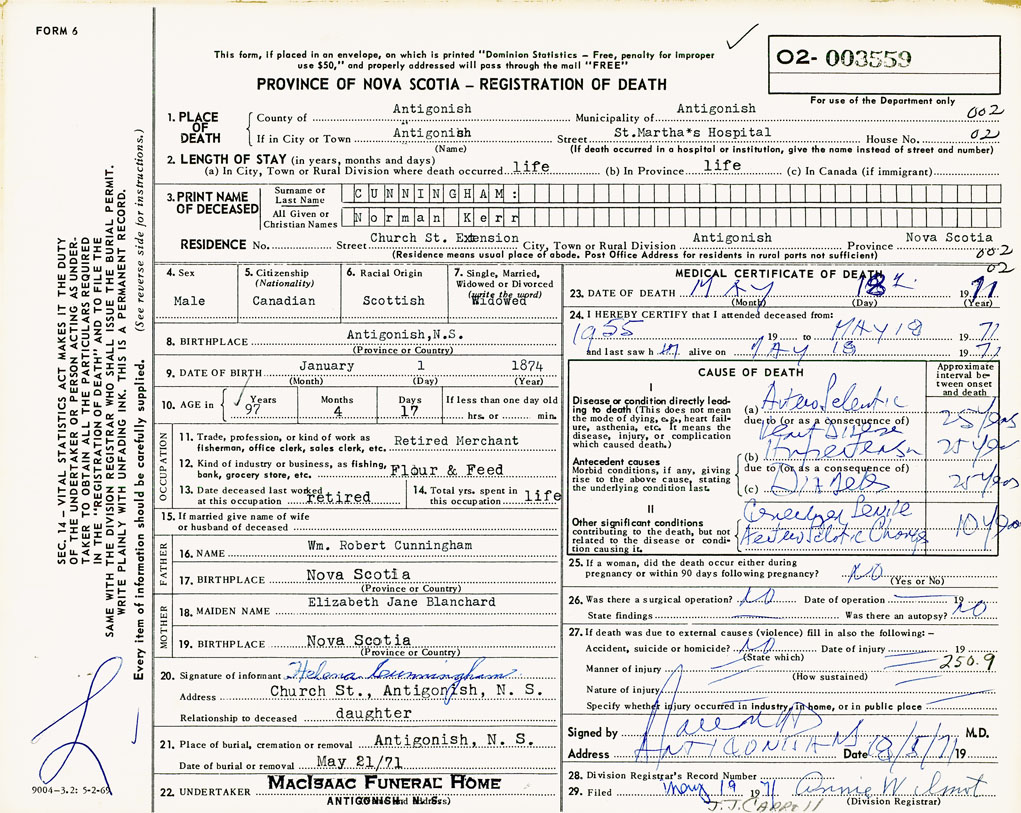 FORM 6
This form, if placed in an envelope, on which is printed "Dominion Statistics – Free, penalty for improper
use $50," and properly addressed will pass through the mail "FREE"
O2- 003559
PROVINCE OF NOVA SCOTIA – REGISTRATION OF DEATH
For use of the Department only
1. PLACE OF DEATH
County of Antigonish Municipality of Antigonish 002
If in City or Town Antigonish Street St.Martha*s Hospital House No. 02
(Name) (If death occurred in a hospital or institution, give the name instead of street and number)
2. LENGTH OF STAY (in years, months and days)
(a) In City, Town or Rural Division where death occurred life (b) In Province life (c) In Canada (if immigrant)
3. PRINT NAME OF DECEASED
Surname or Last Name CUNNINGHAM:
All Given or Christian Names Norman Kerr
RESIDENCE No. Street Church St. Extension City, Town or Rural Division Antigonish Province Nova Scotia
(Residence means usual place of abode. Post Office Address for residents in rural parts not sufficient) 002
02
4. Sex
Male
5. Citizenship
(Nationality)
Canadian
6. Racial Origin
Scottish
7. Single, Married,
Widowed or Divorced
(write the word)
Widowed
8. BIRTHPLACE Antigonish,N.S.
(Province or Country)
9. DATE OF BIRTH January 1 1874
(Month) (Day) (Year)
10. AGE in Years Months Days If less than one day old
97 4 17 hrs. or min.
OCCUPATION
11. Trade, profession, or kind of work as
fisherman, office clerk, sales clerk, etc. Retired Merchant
12. Kind of industry or business, as fishing,
bank, grocery store, etc. Flour & Feed
13. Date deceased last worked
at this occupation retired
14. Total yrs. spent in
this occupation life
15. If married give name of wife
or husband of deceased
FATHER
16. NAME Wm. Robert Cunningham
17. BIRTHPLACE Nova Scotia
(Province or Country)
MOTHER
18. MAIDEN NAME Elizabeth Jane Blanchard
19. BIRTHPLACE Nova Scotia
(Province or Country)
20. Signature of informant Helena Cunningham
Address Church St., Antigonish, N. S.
Relationship to deceased daughter
21. Place of burial, cremation or removal Antigonish, N. S.
Date of burial or removal May 21/71
22. UNDERTAKER MacIsaac Funeral Home
ANTIGONISH N. S.
MEDICAL CERTIFICATE OF DEATH
23. DATE OF DEATH MAY 18 1971
(Month) (Day) (Year)
24. I HEREBY CERTIFY that I attended deceased from:
1955 19 to MAY 18 1971
and last saw h im alive on MAY 18 1971
CAUSE OF DEATH
Approximate
interval be-
tween onset
and death
I
Disease or condition directly lead-
ing to death (This does not mean
the mode of dying, e.g., heart fail-
ure, asthenia, etc. It means the
disease, injury, or complication
which caused death.)
(a) 25 Years
due to (or as a consequence of)
Heart Disease
(b) Hypertension 25 years
Antecedent causes
Morbid conditions, if any, giving
rise to the above cause, stating
the underlying condition last.
due to (or as a consequence of)
(c) Diabetes 25 Years
II
Other significant conditions
contributing to the death, but not
related to the disease or condi-
tion causing it.
Senile
10 Years
25. If a woman, did the death occur either during
pregnancy or within 90 days following pregnancy? NO
(Yes or No)
26. Was there a surgical operation? NO Date of operation 19
State findings Was there an autopsy? NO
27. If death was due to external causes (violence) fill in also the following: –
Accident, suicide or homicide? NO Date of injury 19
(State which)
Manner of injury 250.9
(How sustained)
Nature of injury
Specify whether injury occurred in industry, in home, or in public place
Signed by M.D.
Address ANTIGONISH NS Date 18/5/71 19
28. Division Registrar's Record Number
29. Filed May 19 1971 Annie Wilmot
J.J. CARROLL (Division Registrar)
SEC. 14 – VITAL STATISTICS ACT MAKES IT THE DUTY
OF THE UNDERTAKER OR PERSON ACTING AS UNDER-
TAKER TO OBTAIN ALL THE PARTICULARS REQUIRED
IN THE "REGISTRATION OF DEATH" AND TO FILE THE
SAME WITH THE DIVISION REGISTRAR WHO SHALL ISSUE THE BURIAL PERMIT.
WRITE PLAINLY WITH UNFADING INK. THIS IS A PERMANENT RECORD.
Every item of information should be carefully supplied. (See reverse side for instructions.)
9004-3.2: 5-2-69